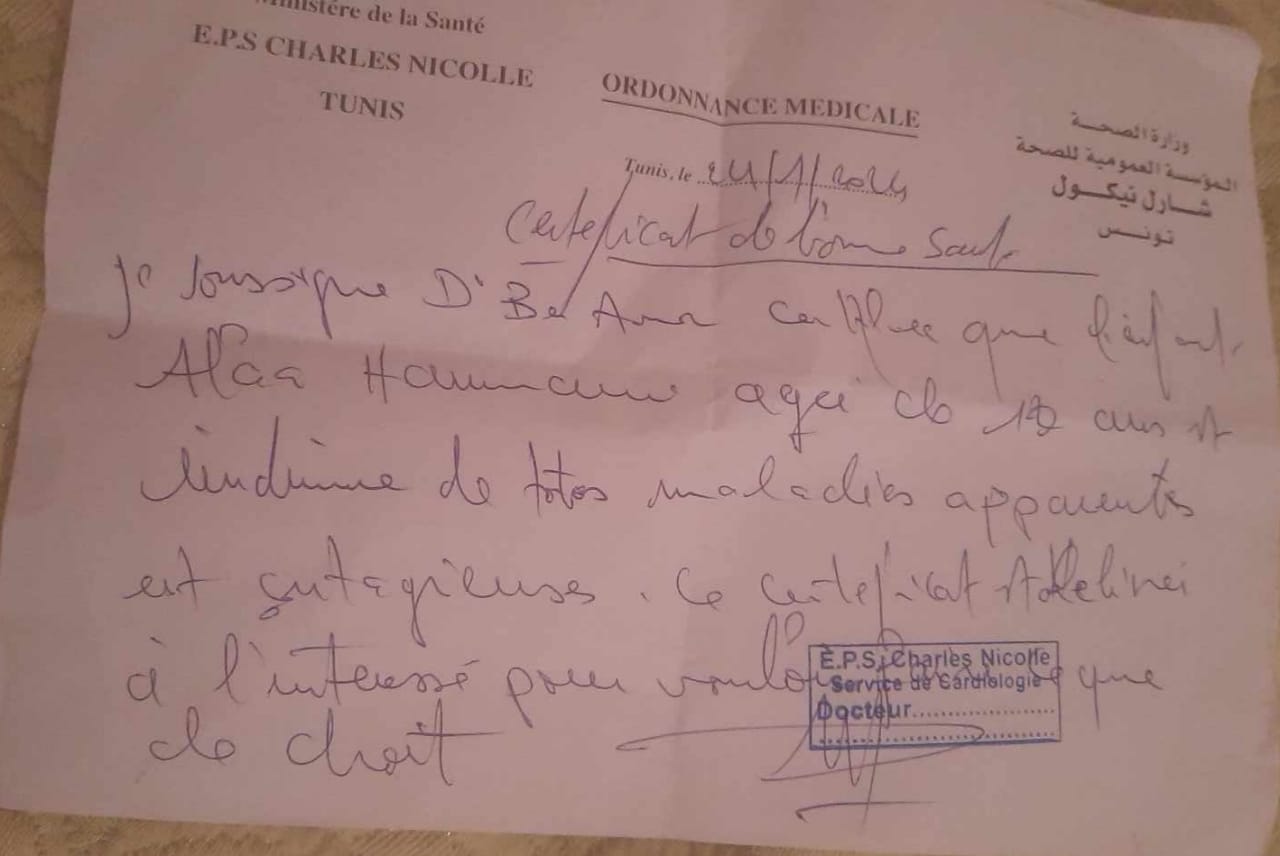 Ministère de la Santé
E.P.S CHARLES NICOLLE
TUNIS
ORDONNANCE MEDICALE
وزارة الصحة
المؤسسة العمومية للصحة
شارل نيكول
تونس
Tunis, le 24/1/2024
Certeficat de bonne Santé
Je soussigné Dr Ben Amor certifiee que l'enfant
Alaa agée de ans et
indemne de totes maladies apparentes
et contagieuses. Ce certeficat et délivrei
à l'interessé pour valoir que
de droit
E.P.S. Charles Nicolle
Service de Cardiologie
Docteur....................